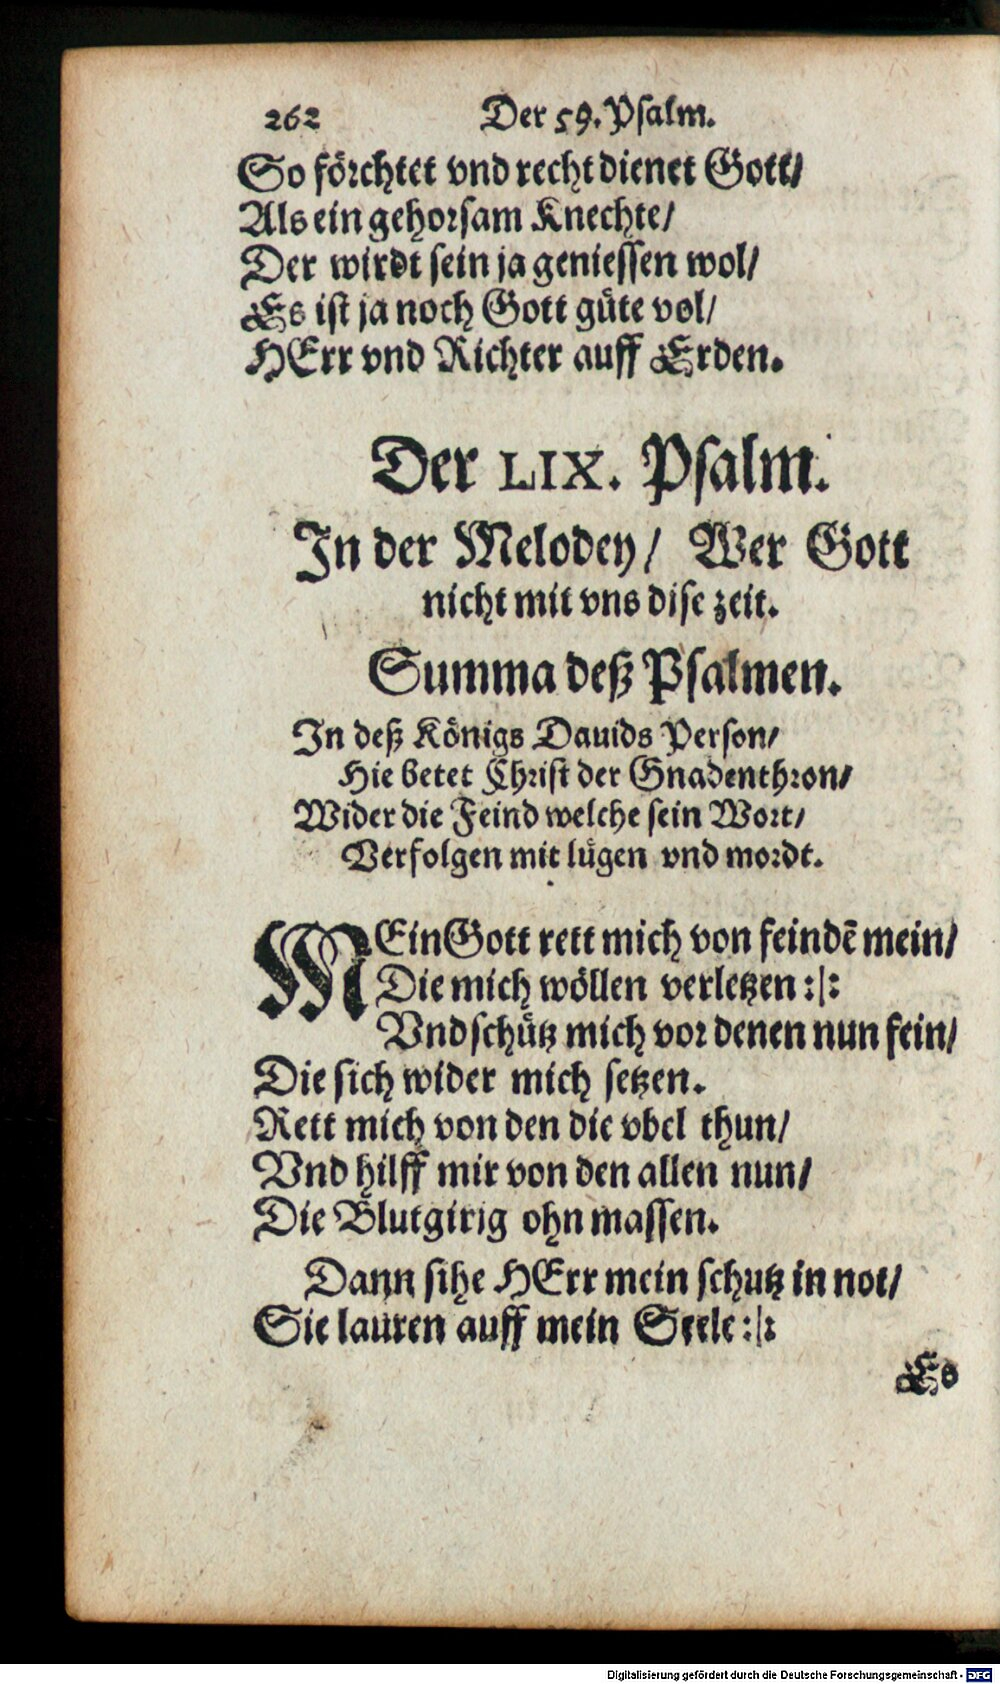 262 Der 59. Psalm.
So förchtet vnd recht dienet Gott/
Als ein gehorsam Knechte/
Der wirdt sein ja geniessen wol/
Es ist ja noch Gott güte vol/
HErr vnd Richter auff Erden.
Der LIX. Psalm.
In der Melodey/ Wer Gott
nicht mit vns dise zeit.
Summa deß Psalmen.
In deß Königs Dauids Person/
Hie betet Christ der Gnadenthron/
Wider die Feind welche sein Wort/
Verfolgen mit lügen vnd mordt.
MEin Gott rett mich von feindē mein/
Die mich wöllen verletzen :|:
Vnd schütz mich vor denen nun fein/
Die sich wider mich setzen.
Rett mich von den die vbel thun/
Vnd hilff mir von den allen nun/
Die Blutgirig ohn massen.
Dann sihe HErr mein schutz in not/
Sie lauren auff mein Seele :|:
Es
Digitalisierung gefördert durch die Deutsche Forschungsgemeinschaft - DFG